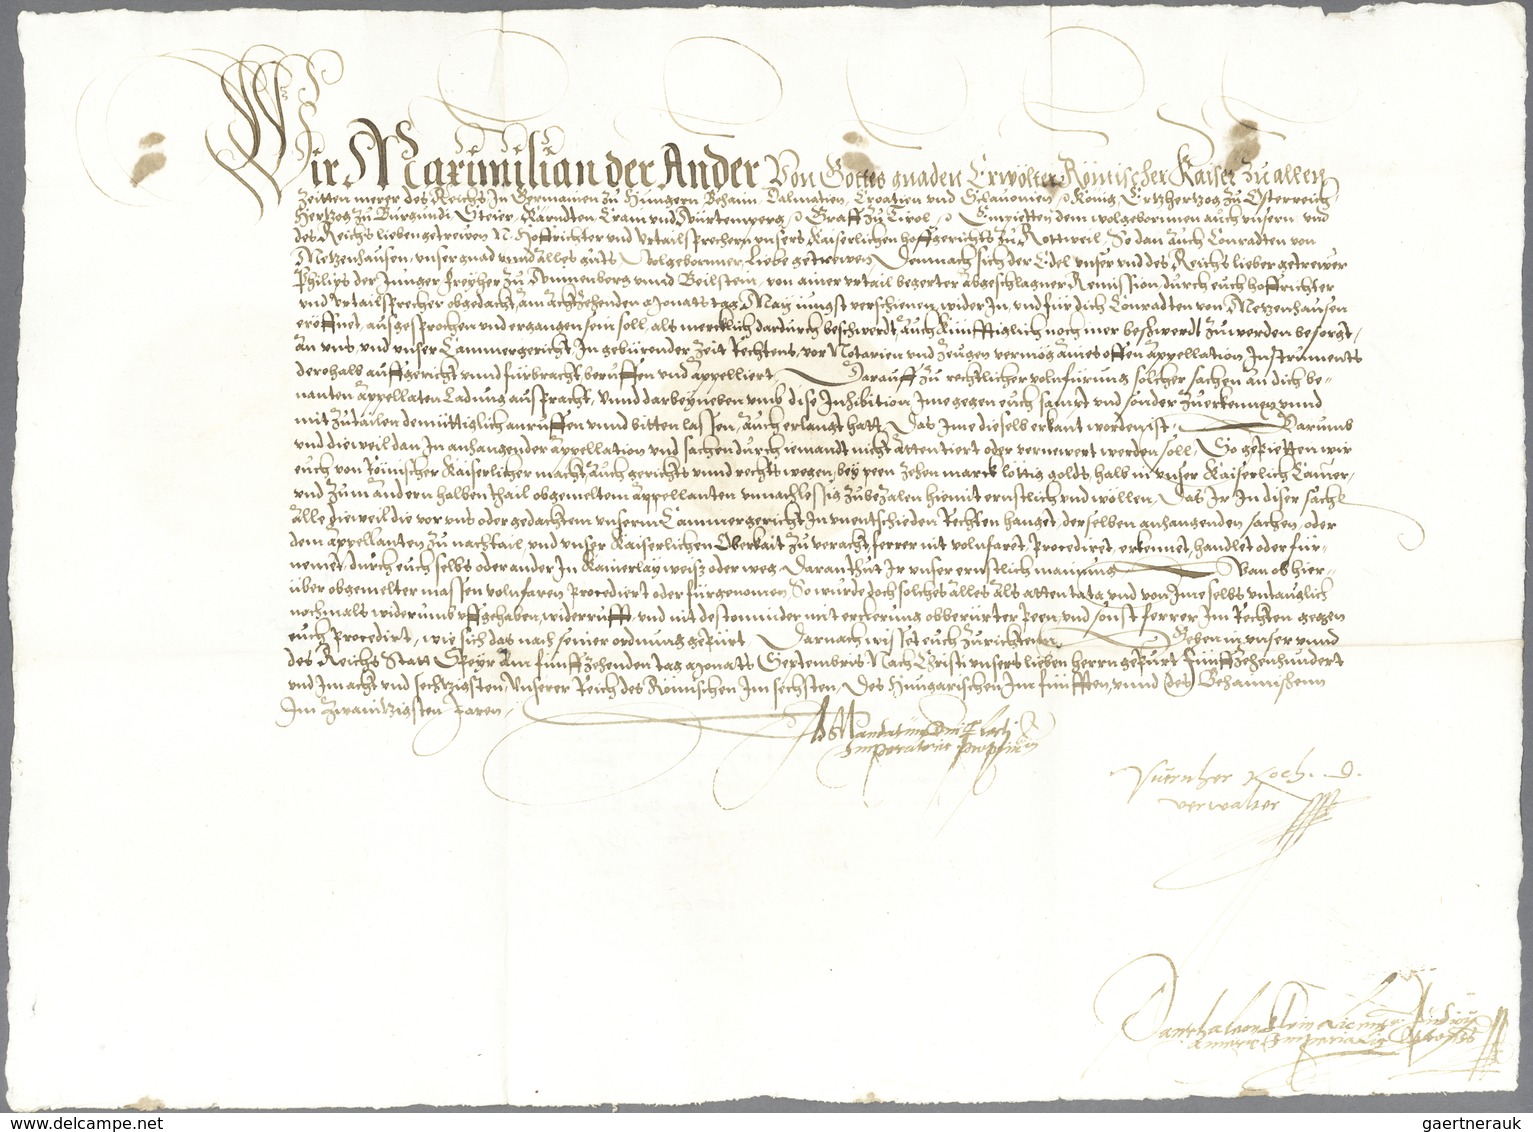 Wir Maximilian der Ander Von Gottes gnaden Erwölter Römischer Kaiser zu allen
Zeitten merer des Reichs In Germanien zu Hungern Behaim Dalmatien Croatien und Sclauonien König Ertzhertzog zu Osterreich
Hertzog zu Burgundi Steier Karndten Crain und Würtemperg Graff zu Tirol Empietten dem wolgebornnen auch unsern und
des Reichs lieben getrewen N. Hoffrichter und Urtailsprechern unsers Kaiserlichen hoffgerichts zu Rottweil, So dan auch Conradten von
Metzenhausen, unser gnad unnd alles guts Wolgebornner, Liebe getrewen, Demnach sich der Edel unser und des Reichs lieber getrewer
Philips der Junger freyher zu Winnenberg unnd Beilstein, von ainer urtail begerter abgeschlagner Remission durch euch hoffrichter
und Urtailsprecher obgedacht, am achtzehenden Monatts tag Maij jungst verschienen, wider In, und für dich Conradten von Metzenhausen
eröffnet, ausgesprochen und ergangen sein soll, als mercklich dardurch beschwerdt, auch künfftiglich noch mer beschwerdt zu werden besorgt,
an uns, und unser Cammergericht, In gebürender Zeit Rechtens, vor Notarien und Zeugen vermög aines offen appellation Instruments
derohalb auffgericht unnd fürbracht, beruffen und appelliert Darauff zu rechtlicher volnfürung solcher sachen an dich be-
nanten appellaten Ladung auspracht, Unnd darbeyneben umb dise Inhibition Ime gegen euch sampt und sonder zuerkennen unnd
mitzutailen demüttiglich anruffen unnd bitten lassen, auch erlangt hatt, Das Ime dieselb erkant worden ist, Darumb
und dieweil dan In anhangender appellation und sachen durch iemandt nicht attentiert oder vernewert werden soll, So gepietten wir
euch von Römischer Kaiserlicher macht, auch gerichts unnd rechts wegen, bey peen zehen marck löttigs golds, halb in unser Kaiserlich Camer-
und zum andern halben thail obgemeltem appellanten unnachlessig zubezalen hiemit ernstlich und wöllen, Das Ir In diser sach
alle dieweil die vor uns oder gedachtem unserm Cammergericht In unentschieden Rechten hanget, derselben anhangenden sachen, oder
dem appellanten zu nachtail, und unser Kaiserlichen Oberkait zu veracht, ferrer nit volnfaret, Procediret, erkennet, handlet oder für-
nemet, durch euch selbs oder ander In kainerlay weisz oder weg Daran thut Ir unser ernstlich mainung Wan ob hier-
über obgemelter massen volnfaren procediert oder fürgenomen, So wurde doch solches alles als attentata und von Ime selbs untauglich
nochmals widerumb uffgehaben, widerrufft, und nit destominder mit erclerung obberürter Peen, und sonst ferrer Im Rechten gegen
euch Procedirt, wie sich das nach seiner ordnung gepürt Darnach wisset euch zurichten. Geben in unser unnd
des Reichs Statt Speyr am fünffzehenden tag Monatts Septembris Nach Christi unsers lieben herrn gepurt fünffzehenhundert
und Im acht und sechtzigsten, Unserer Reich des Römischen Im sechsten, Des Hungarischen Im fünfften, unnd des Behamischenn
Im Zwaintzigsten Jaren,
Ad Mandatum Dni Electi
Imperatoris proprium
Koch. D.
verwalter